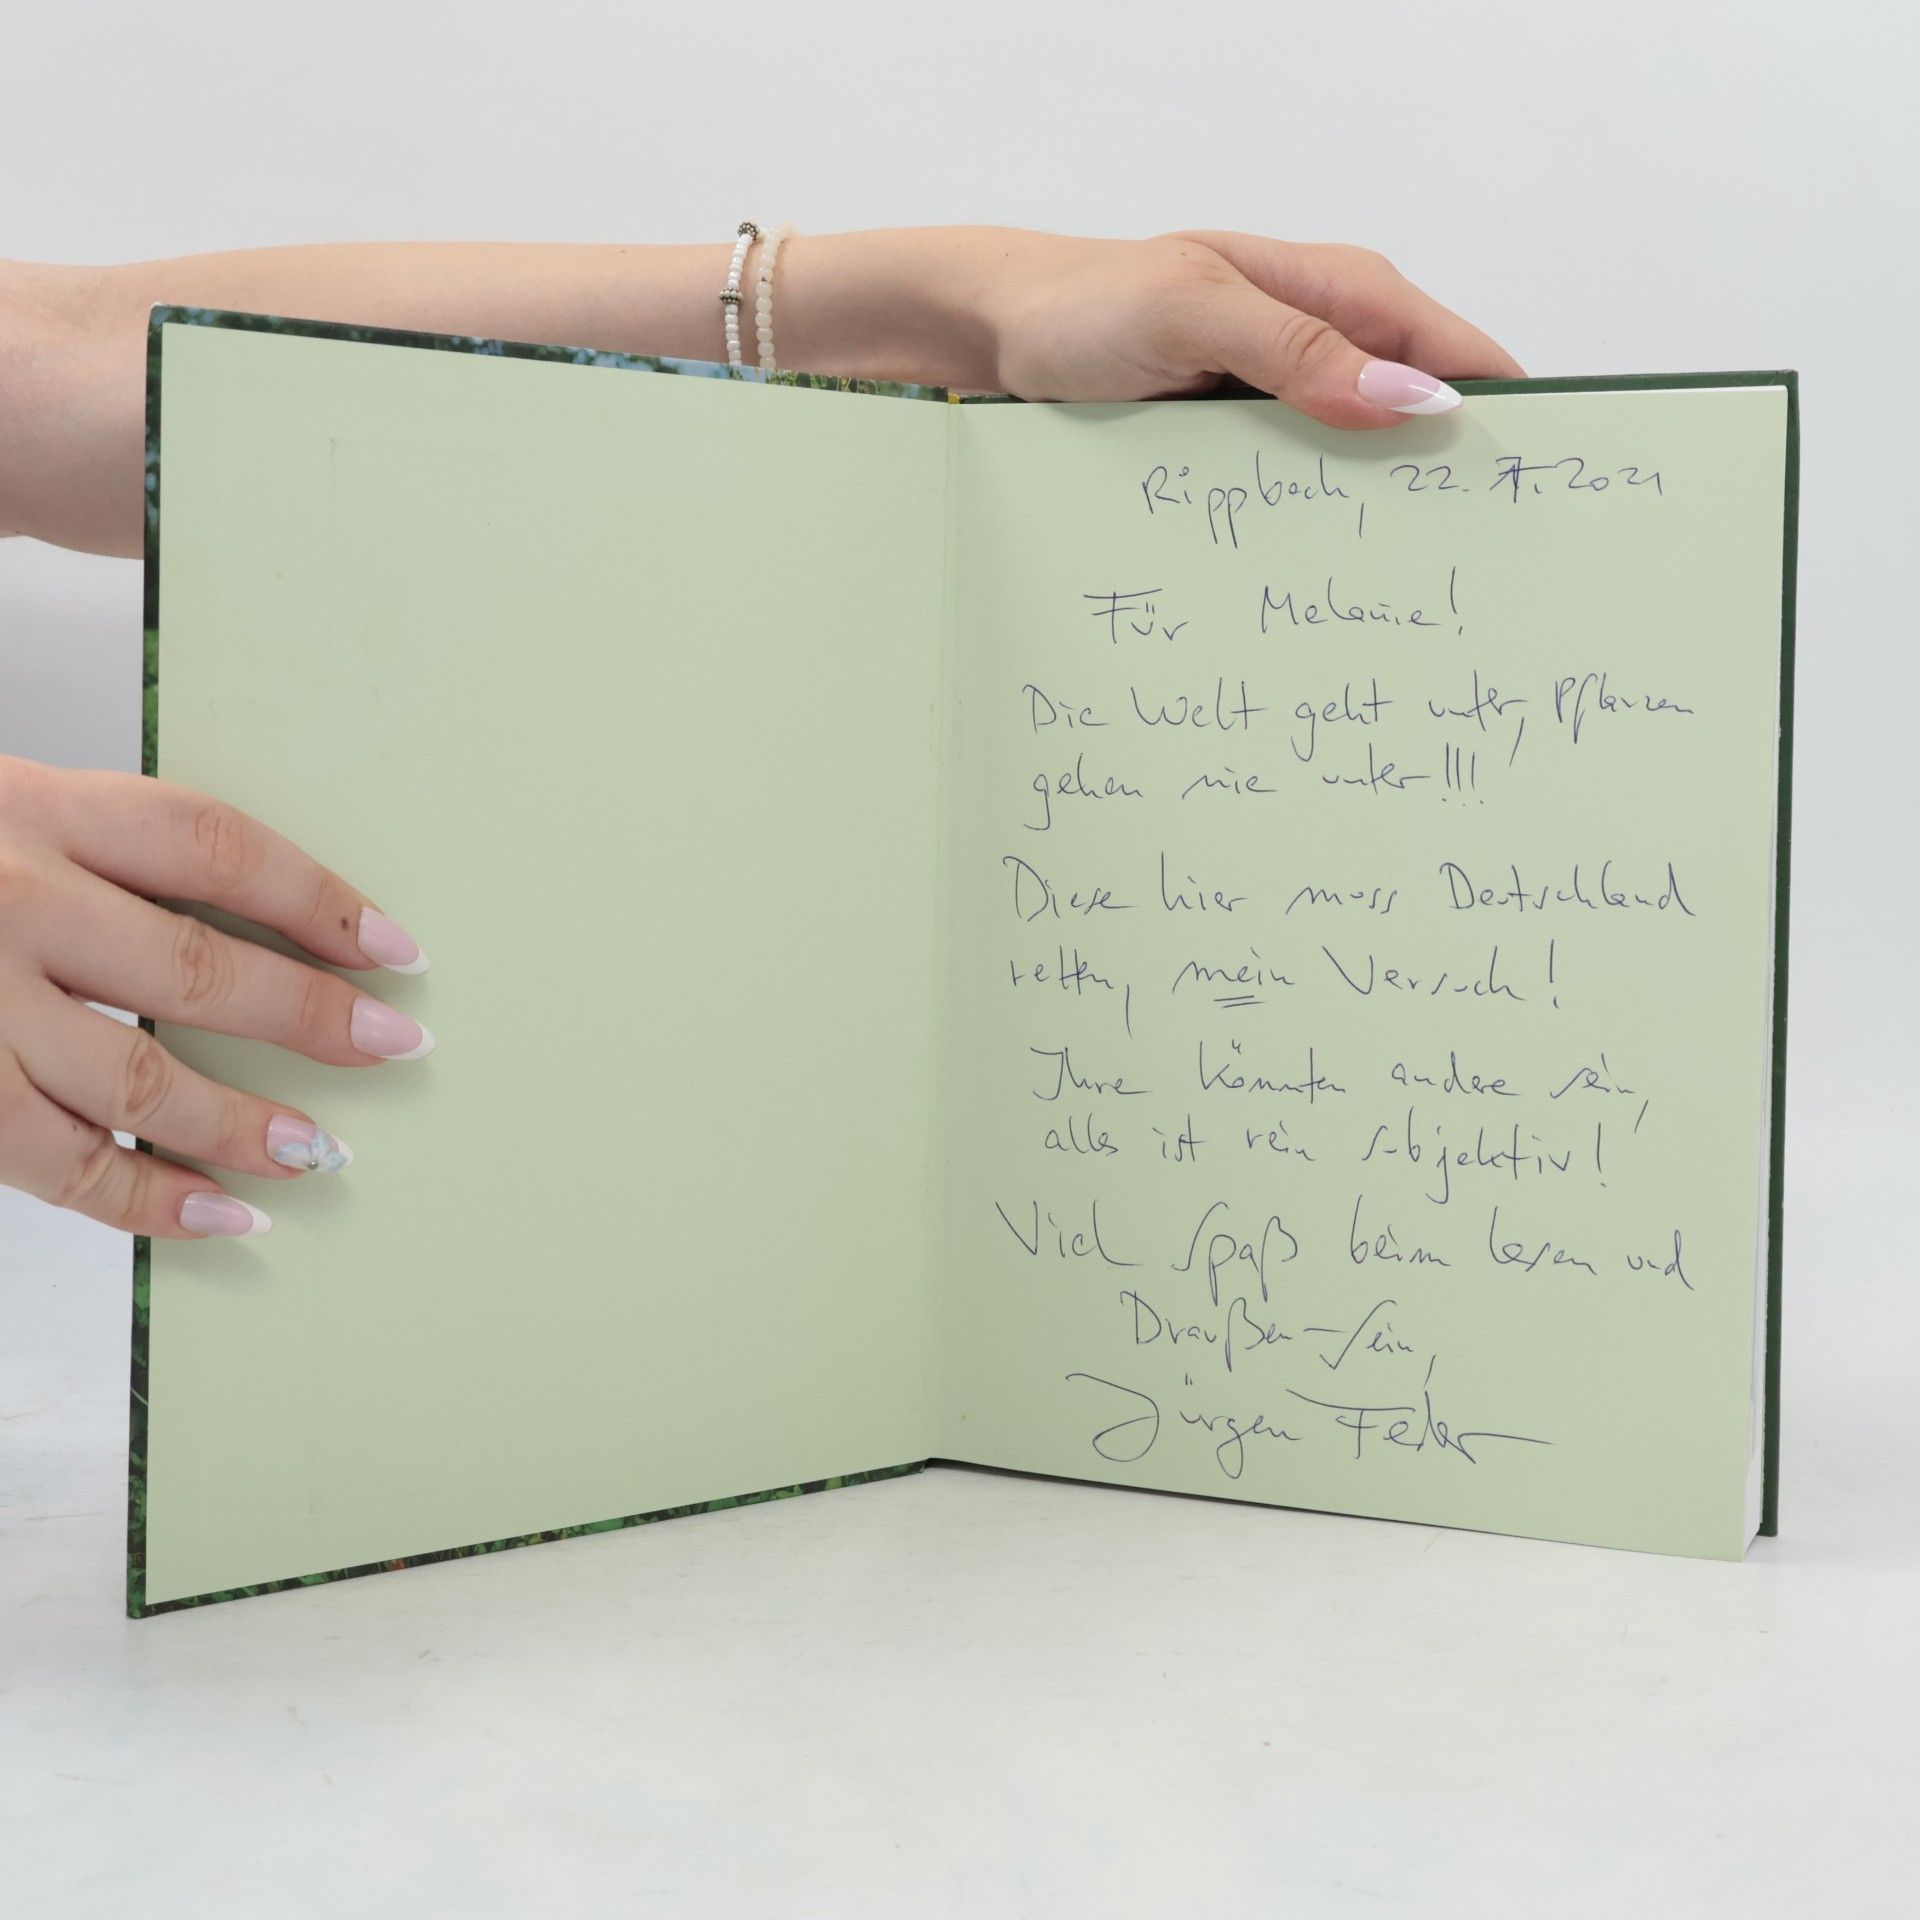 Rippbach, 22. 7. 2021
Für Melanie!
Die Welt geht unter, Pflanzen
gehen nie unter!!!
Diese hier muss Deutschland
retten, mein Versuch!
Ihre könnten andere sein,
alles ist rein subjektiv!
Viel Spaß beim lesen und
Draußen-sein,
Jürgen Feder